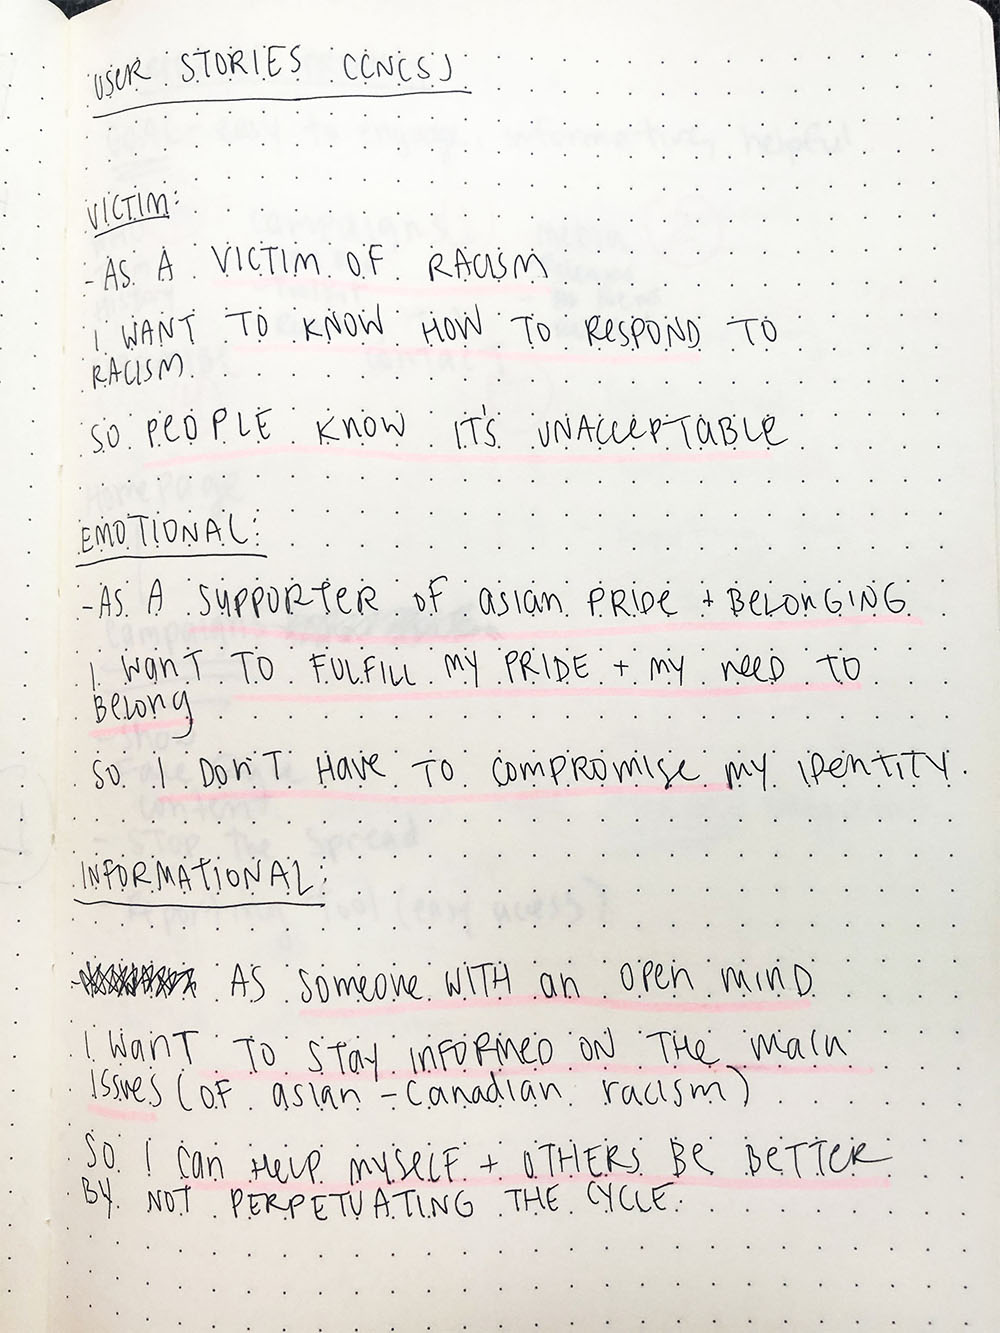 USER STORIES CCNCSJ
VICTIM:
- AS A VICTIM OF RACISM
I WANT TO KNOW HOW TO RESPOND TO
RACISM
SO PEOPLE KNOW IT'S UNACCEPTABLE
EMOTIONAL:
- AS A SUPPORTER OF asian PRIDE + BELONGING
I WANT TO FULFILL MY PRIDE + MY need TO
Belong
SO I DON'T HAVE TO COMPROMISE MY IDENTITY.
INFORMATIONAL:
AS SOMEONE WITH an OPEN MIND
I WANT TO STAY INFORMED ON THE main
ISSUES (OF asian - Canadian racism)
SO I CAN HELP MYSELF + OTHERS BE BETTER
BY NOT PERPETUATING THE CYCLE.